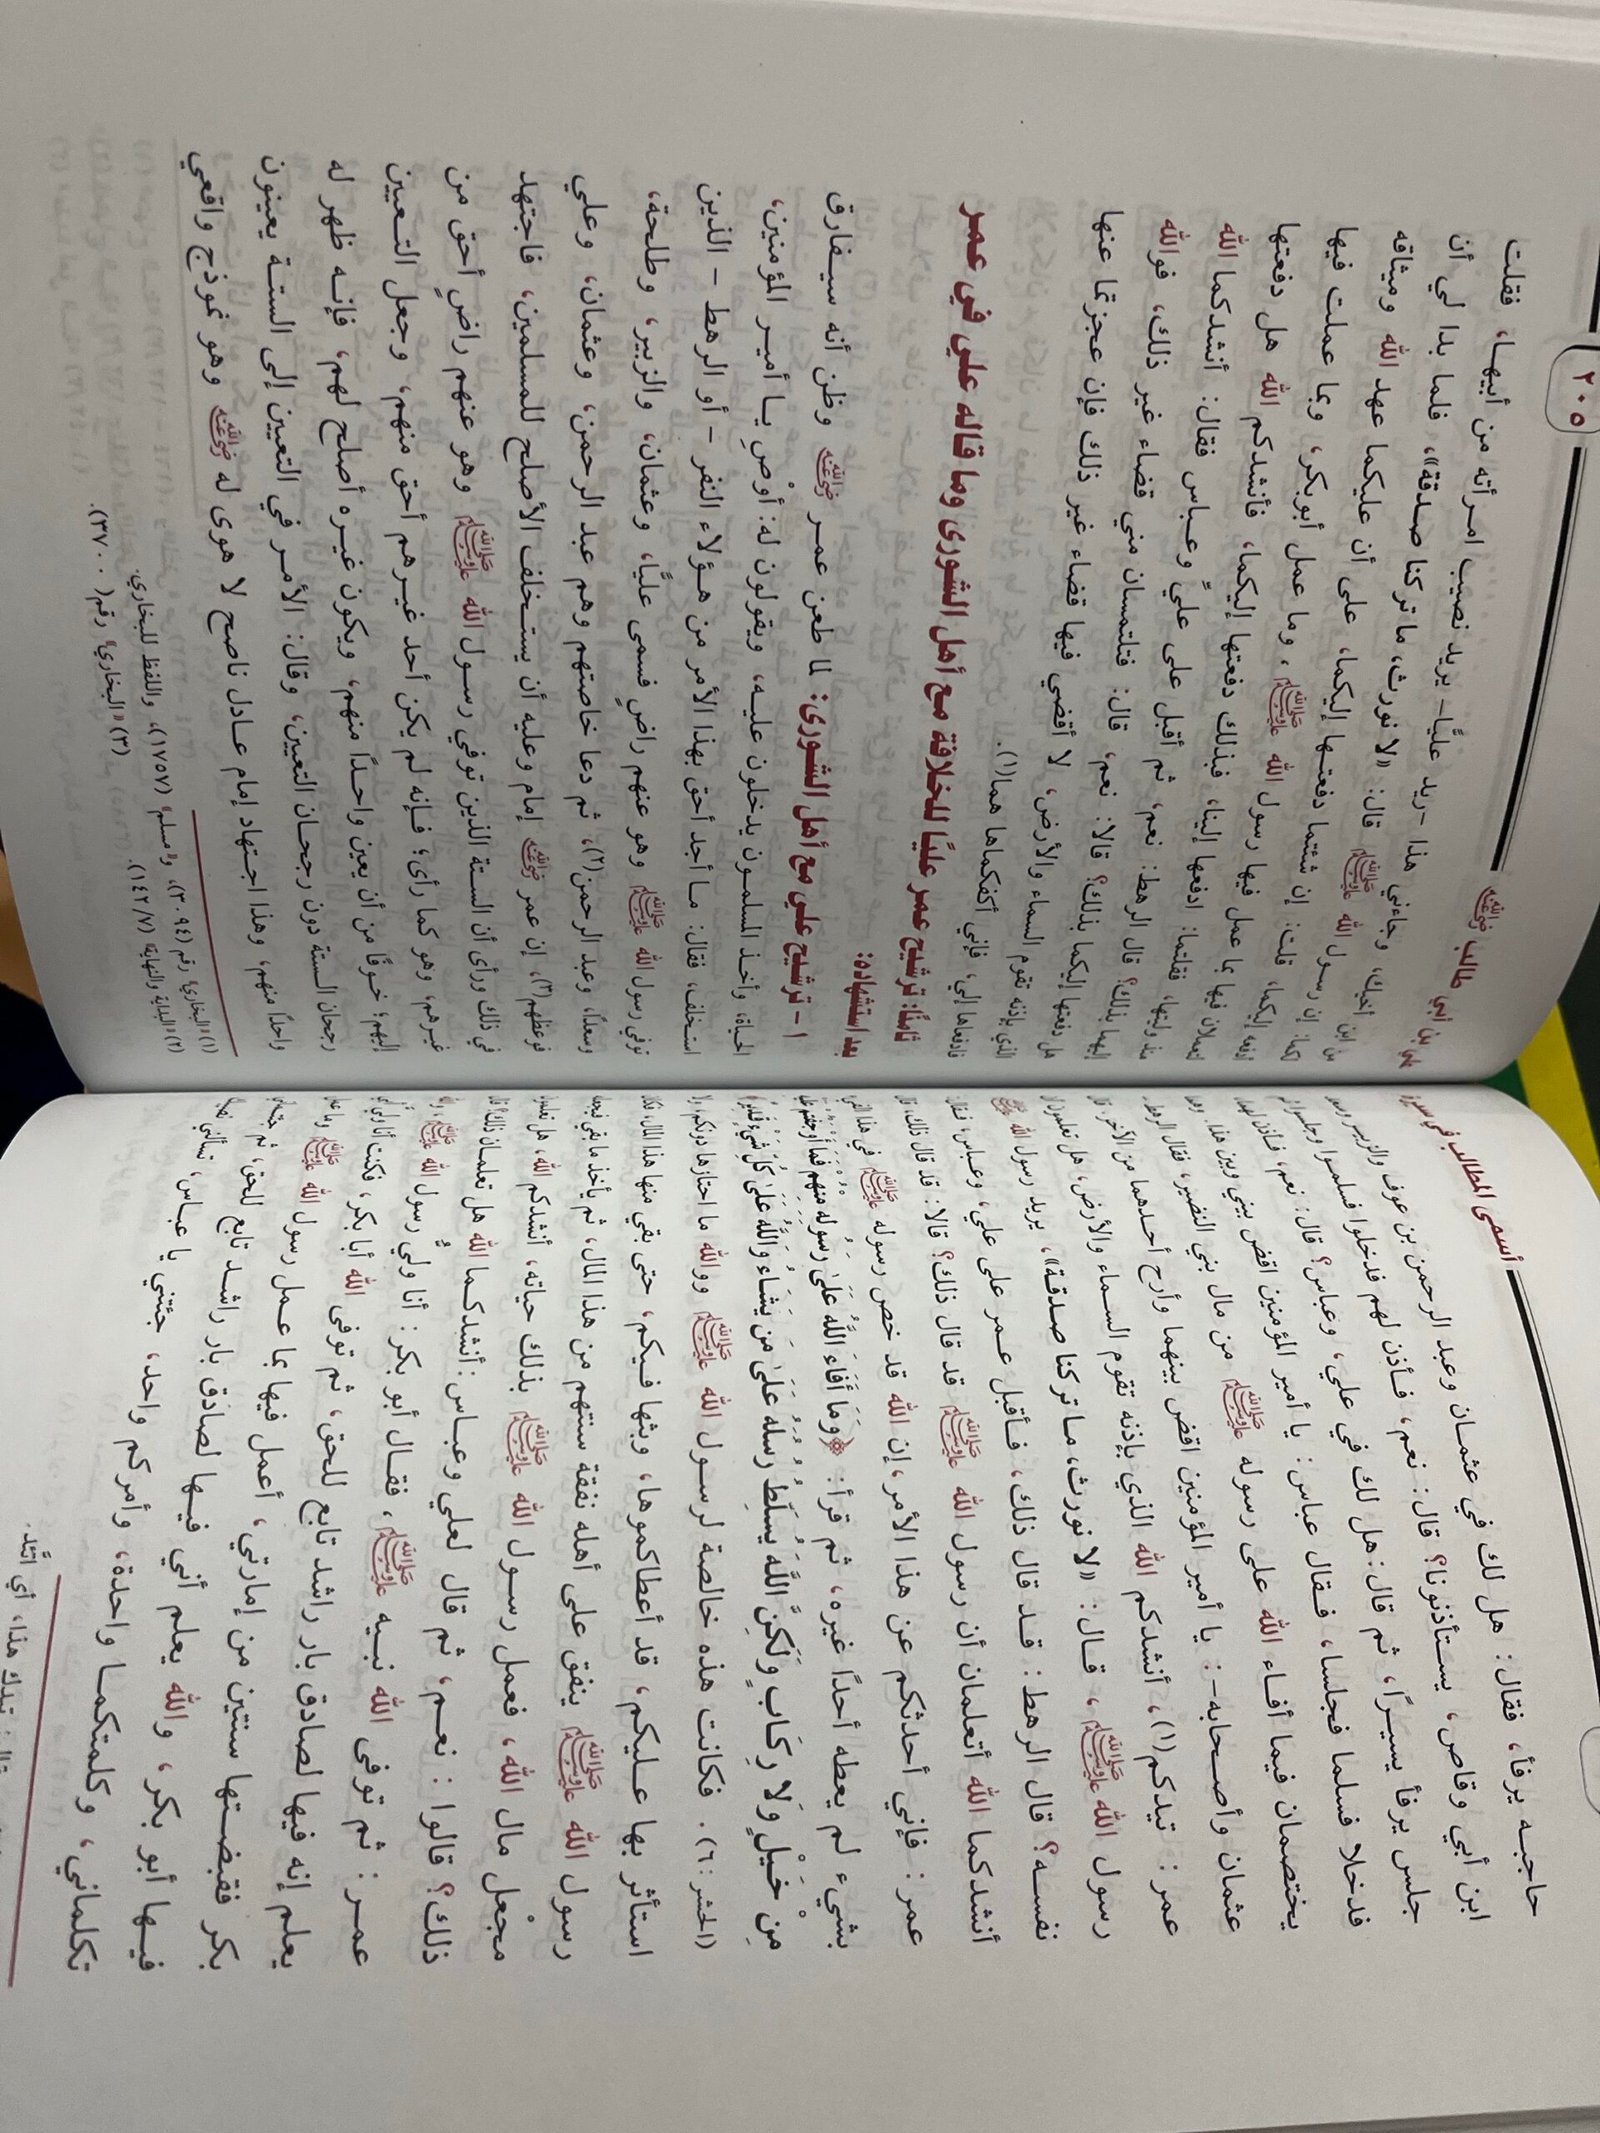 أسمى المطالب في سيرة
حاجبه يرفأ، فقال: هل لك في عثمان وعبد الرحمن بن عوف والزبير وسعد
ابن أبي وقاص، يستأذنونا؟ قال: نعم، فأذن لهم فدخلوا فسلموا وجلسوا
جلس يرفأ يسيرًا، ثم قال: هل لك في علي، وعباس؟ قال: نعم، فأذن لهما
فدخلا فسلما فجلسا، فقال عباس: يا أمير المؤمنين اقض بيني وبين هذا، وهما
يختصمان فيما أفاء الله على رسوله ﷺ من مال بني النضير، فقال الرهط
عثمان وأصحابه-: يا أمير المؤمنين اقض بينهما وأرح أحدهما من الآخر، قال
عمر: تيدكم(١)، أنشدكم الله الذي بإذنه تقوم السماء والأرض، هل تعلمون أن
رسول الله ﷺ، قال: «لا نورث، ما تركنا صدقة»، يريد رسول الله ﷺ
نفسه؟ قال الرهط: قد قال ذلك، فأقبل عمر على علي، وعباس، فقال
أنشدكما الله أتعلمان أن رسول الله ﷺ قد قال ذلك؟ قالا: قد قال ذلك، قال
عمر: فإني أحدثكم عن هذا الأمر، إن الله قد خص رسوله ﷺ في هذا الفيء
بشيء لم يعطه أحدًا غيره، ثم قرأ: ﴿وَمَا أَفَاءَ اللَّهُ عَلَىٰ رَسُولِهِ مِنْهُمْ فَمَا أَوْجَفْتُمْ عَلَيْهِ
مِنْ خَيْلٍ وَلَا رِكَابٍ وَلَٰكِنَّ اللَّهَ يُسَلِّطُ رُسُلَهُ عَلَىٰ مَن يَشَاءُ وَاللَّهُ عَلَىٰ كُلِّ شَيْءٍ قَدِيرٌ﴾
(الحشر: ٦). فكانت هذه خالصة لرسول الله ﷺ ووالله ما احتازها دونكم، ولا
استأثر بها عليكم، قد أعطاكموها، وبثها فيكم، حتى بقي منها هذا المال، فكان
رسول الله ﷺ ينفق على أهله نفقة سنتهم من هذا المال، ثم يأخذ ما بقي فيجعله
مجْعل مال الله، فعمل رسول الله ﷺ بذلك حياته، أنشدكم الله، هل تعلمون
ذلك؟ قالوا: نعم، ثم قال لعلي وعباس: أنشدكما الله هل تعلمان ذلك؟ قال
عمر: ثم توفى الله نبيه ﷺ، فقال أبو بكر: أنا وليُّ رسول الله ﷺ،
يعلم إنه فيها لصادق بار راشد تابع للحق، ثم توفى الله أبا بكر، فكنت أنا وليَّ أبي
بكر فقبضتها سنتين من إمارتي، أعمل فيها بما عمل رسول الله ﷺ وما عمل
فيها أبو بكر، والله يعلم أني فيها لصادق بار راشد تابع للحق، ثم جئتماني
تكلماني، وكلمتكما واحدة، وأمركم واحد، جئتني يا عباس، تسألني نصيبك
قال: تيدك هذا، أي اتَّئد.
علي بن أبي طالب رضي الله عنه
٢٠٥
من ابن أخيك، وجاءني هذا -يريد عليًّا- يريد نصيب امرأته من أبيها، فقلت
لكما: إن رسول الله ﷺ قال: «لا نورث، ما تركنا صدقة»، فلما بدا لي أن
أدفعه إليكما، قلت: إن شئتما دفعتها إليكما، على أن عليكما عهد الله وميثاقه
لتعملان فيها بما عمل فيها رسول الله ﷺ، وما عمل أبوبكر، وبما عملت فيها
منذ وليتها، فقلتما: ادفعها إلينا، فبذلك دفعتها إليكما، فأنشدكم الله هل دفعتها
إليهما بذلك؟ قال الرهط: نعم، ثم أقبل على عليٍّ وعباس فقال: أنشدكما الله
هل دفعتها إليكما بذلك؟ قالا: نعم، قال: فتلتمسان مني قضاء غير ذلك، فوالله
الذي بإذنه تقوم السماء والأرض، لا أقضي فيها قضاء غير ذلك فإن عجزتما عنها
فادفعاها إلي، فإني أكفكماها هما(١).
ثامنًا: ترشيح عمر عليًا للخلافة مع أهل الشورى وما قاله علي في عمر
بعد استشهاده:
١- ترشيح علي مع أهل الشورى: لما طعن عمر رضي الله عنه وظن أنه سيفارق
الحياة، وأخذ المسلمون يدخلون عليه، ويقولون له: أوْصِ يا أمير المؤمنين،
استخلف، فقال: ما أجد أحق بهذا الأمر من هؤلاء النفر - أو الرهط - الذين
توفي رسول الله ﷺ وهو عنهم راضٍ فسمى عليًّا، وعثمان، والزبير، وطلحة،
وسعدًا، وعبد الرحمن(٢)، ثم دعا خاصتهم وهم عبد الرحمن، وعثمان، وعلي
فوعظهم(٣)، إن عمر رضي الله عنه إمام وعليه أن يستخلف الأصلح للمسلمين، فاجتهد
في ذلك ورأى أن الستة الذين توفي رسول الله ﷺ وهو عنهم راضٍ أحق من
غيرهم، وهو كما رأى؛ فإنه لم يكن أحد غيرهم أحق منهم، وجعل التعيين
إليهم؛ خوفًا من أن يعين واحدًا منهم، ويكون غيره أصلح لهم، فإنه ظهر له
رجحان الستة دون رجحان التعيين، وقال: الأمر في التعيين إلى الستة يعينون
واحدًا منهم، وهذا اجتهاد إمام عادل ناصح لا هوى له رضي الله عنه وهو نموذج واقعي
(١) «البخاري» رقم (٣٠٩٤)، و«مسلم» (١٧٥٧)، واللفظ للبخاري.
(٢) «البداية والنهاية» (٧/١٤٢).
(٣) «البخاري» رقم (٣٧٠٠).